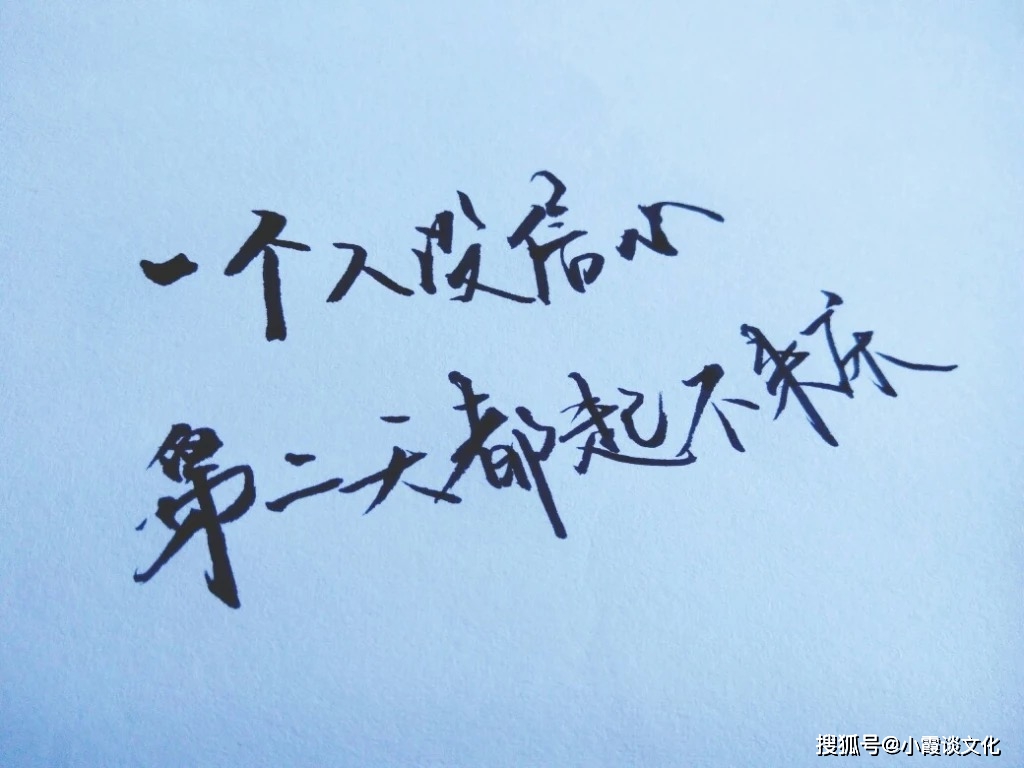 一个人没信心
第二天都起不来床
搜狐号@小霞谈文化